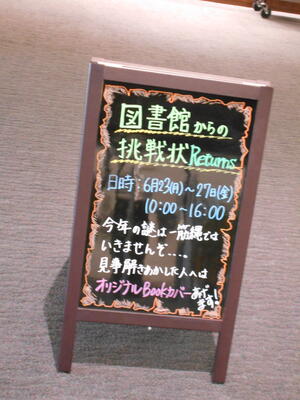 図書館からの
挑戦状Returns
日時:6月23(月)～27日(金)
10:00～16:00
今年の謎は一筋縄では
いきませんぞ....。
見事解きあかした人へは
オリジナルBookカバーあげ
ます!